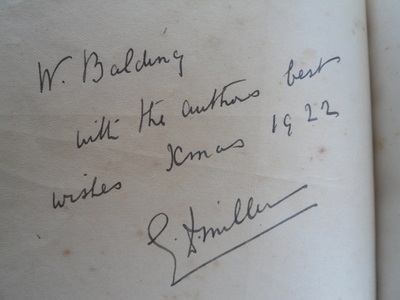 W. Balding
with the authors best
wishes Xmas 1922
G. D. Miller